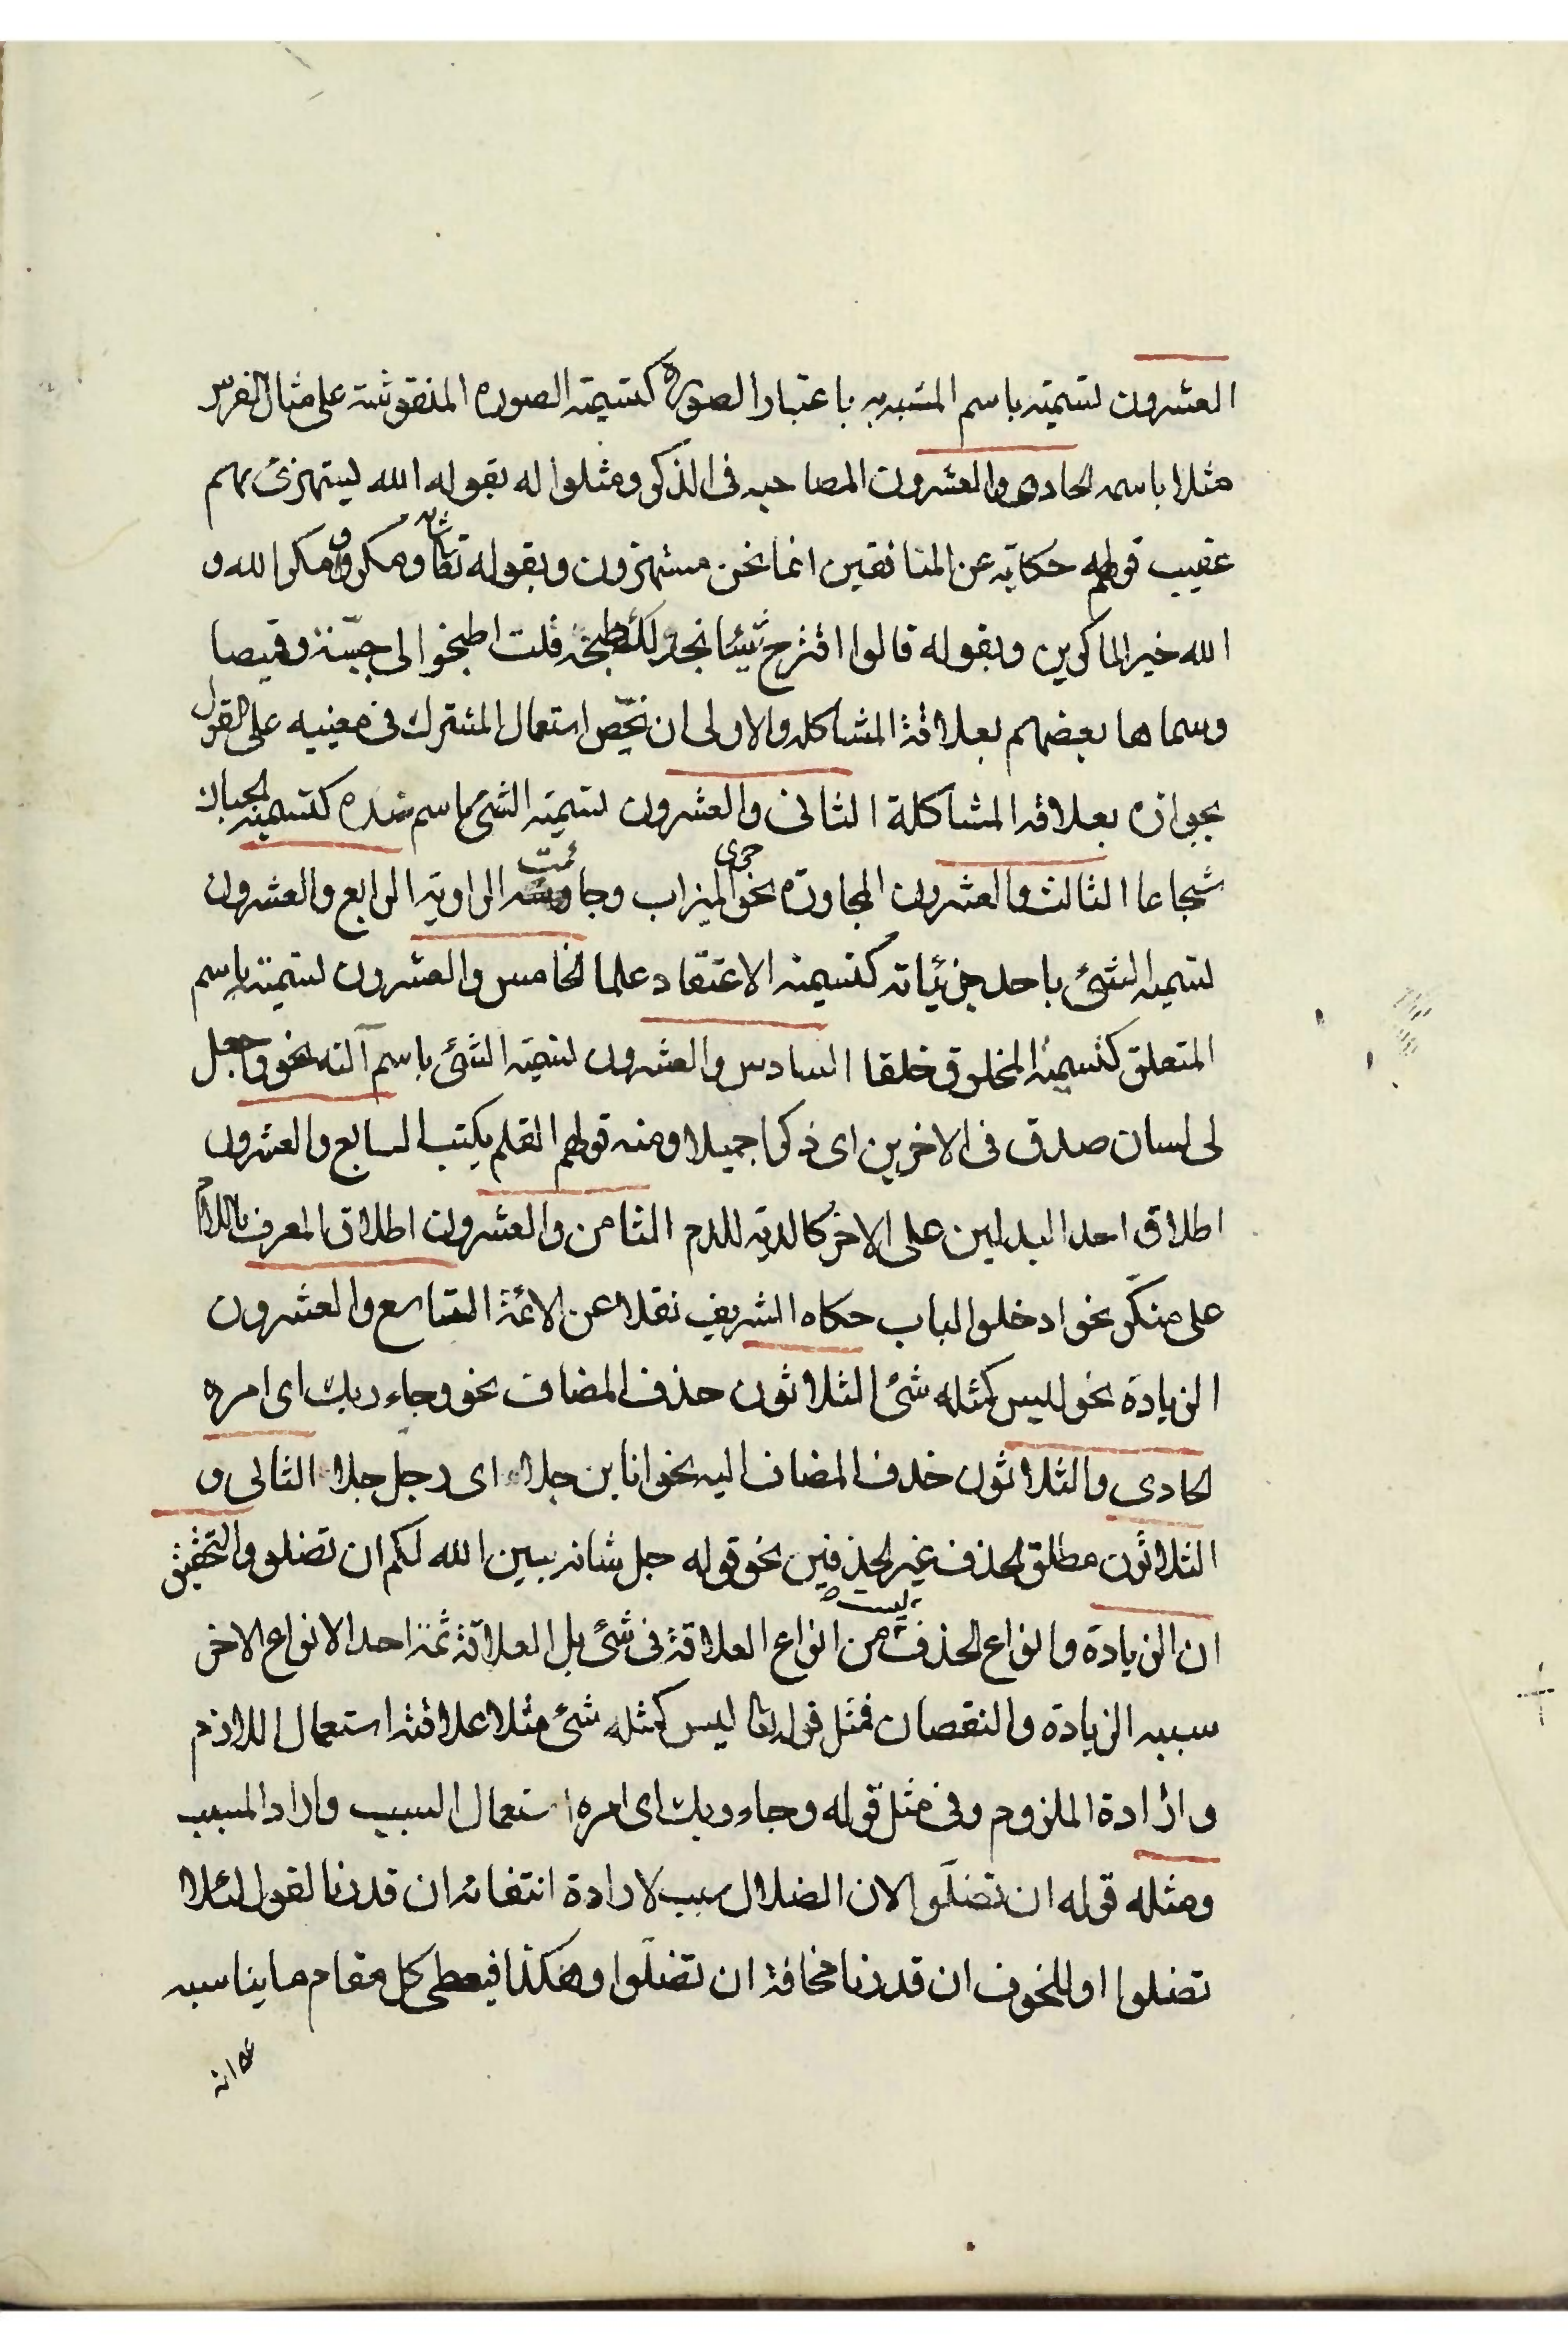 العشرون تسميته باسم المشبه به باعتبار الصورة كتسمية الصوره المنقوشة على مثال الفرس
مثلا باسمه الحادى والعشرون المصاحبه فى الذكر ومثلوا له بقوله الله يستهزئ بهم
عقيب قولهم حكاية عن المنافقين انما نحن مستهزون وبقوله تعالى شانه ومكروا ومكر الله و
الله خير الماكرين وبقوله قالوا اقترح شيئا نجد لك طبخه قلت اطبخوا لى جبّة وقميصا
وسماها بعضهم بعلاقة المشاكله والاولى ان نخصّ استعمال المشترك فى معنييه على القول
بجوازه بعلاقه المشاكلة الثانى والعشرون تسمية الشئ باسم ضده كتسمية الجبان
شجاعا الثالث والعشرون المجاورة نحو جرى الميزاب وجاءت الراوية الرابع والعشرون
تسميه الشئ باحد جزئياته كتسمية الاعتقاد علما الخامس والعشرون تسميته باسم
المتعلق كتسمية المخلوق خلقا السادس والعشرون تسمية الشئ باسم آلته نحو واجعل
لى لسان صدق فى الاخرين اى ذكرا جميلا ومنه قولهم القلم يكتب السابع والعشرون
اطلاق احد البدلين على الاخر كالدية للدم الثامن والعشرون اطلاق المعرف باللام
على منكّر نحو ادخلوا الباب حكاه الشريف نقلا عن الائمة التاسع والعشرون
الزيادة نحو ليس كمثله شئ الثلاثون حذف المضاف نحو وجاء ربك اى امره
الحادى والثلاثون حذف المضاف اليه نحو انا بن جلا اى رجل جلا الثانى و
الثلاثون مطلق الحذف غير الحذفين نحو قوله جل شانه يبين الله لكم ان تضلو والتحقيق
ان الزيادة وانواع الحذف ليست من انواع العلاقة فى شئ بل العلاقة ثمة احد الانواع الاخر
سببه الزيادة والنقصان فمثل قوله تعا ليس كمثله شئ مثلا علاقته استعمال اللازم
وارادة الملزوم وفى مثل قوله وجاء ربك اى امره استعمال السبب واراد المسبب
ومثله قوله ان تضلّوا لان الضلال سبب لارادة انتفائه ان قدرنا لقول لئلا
تضلوا او للخوف ان قدرنا مخافة ان تضلّوا وهكذا فيعطى كل مقام ما يناسبه